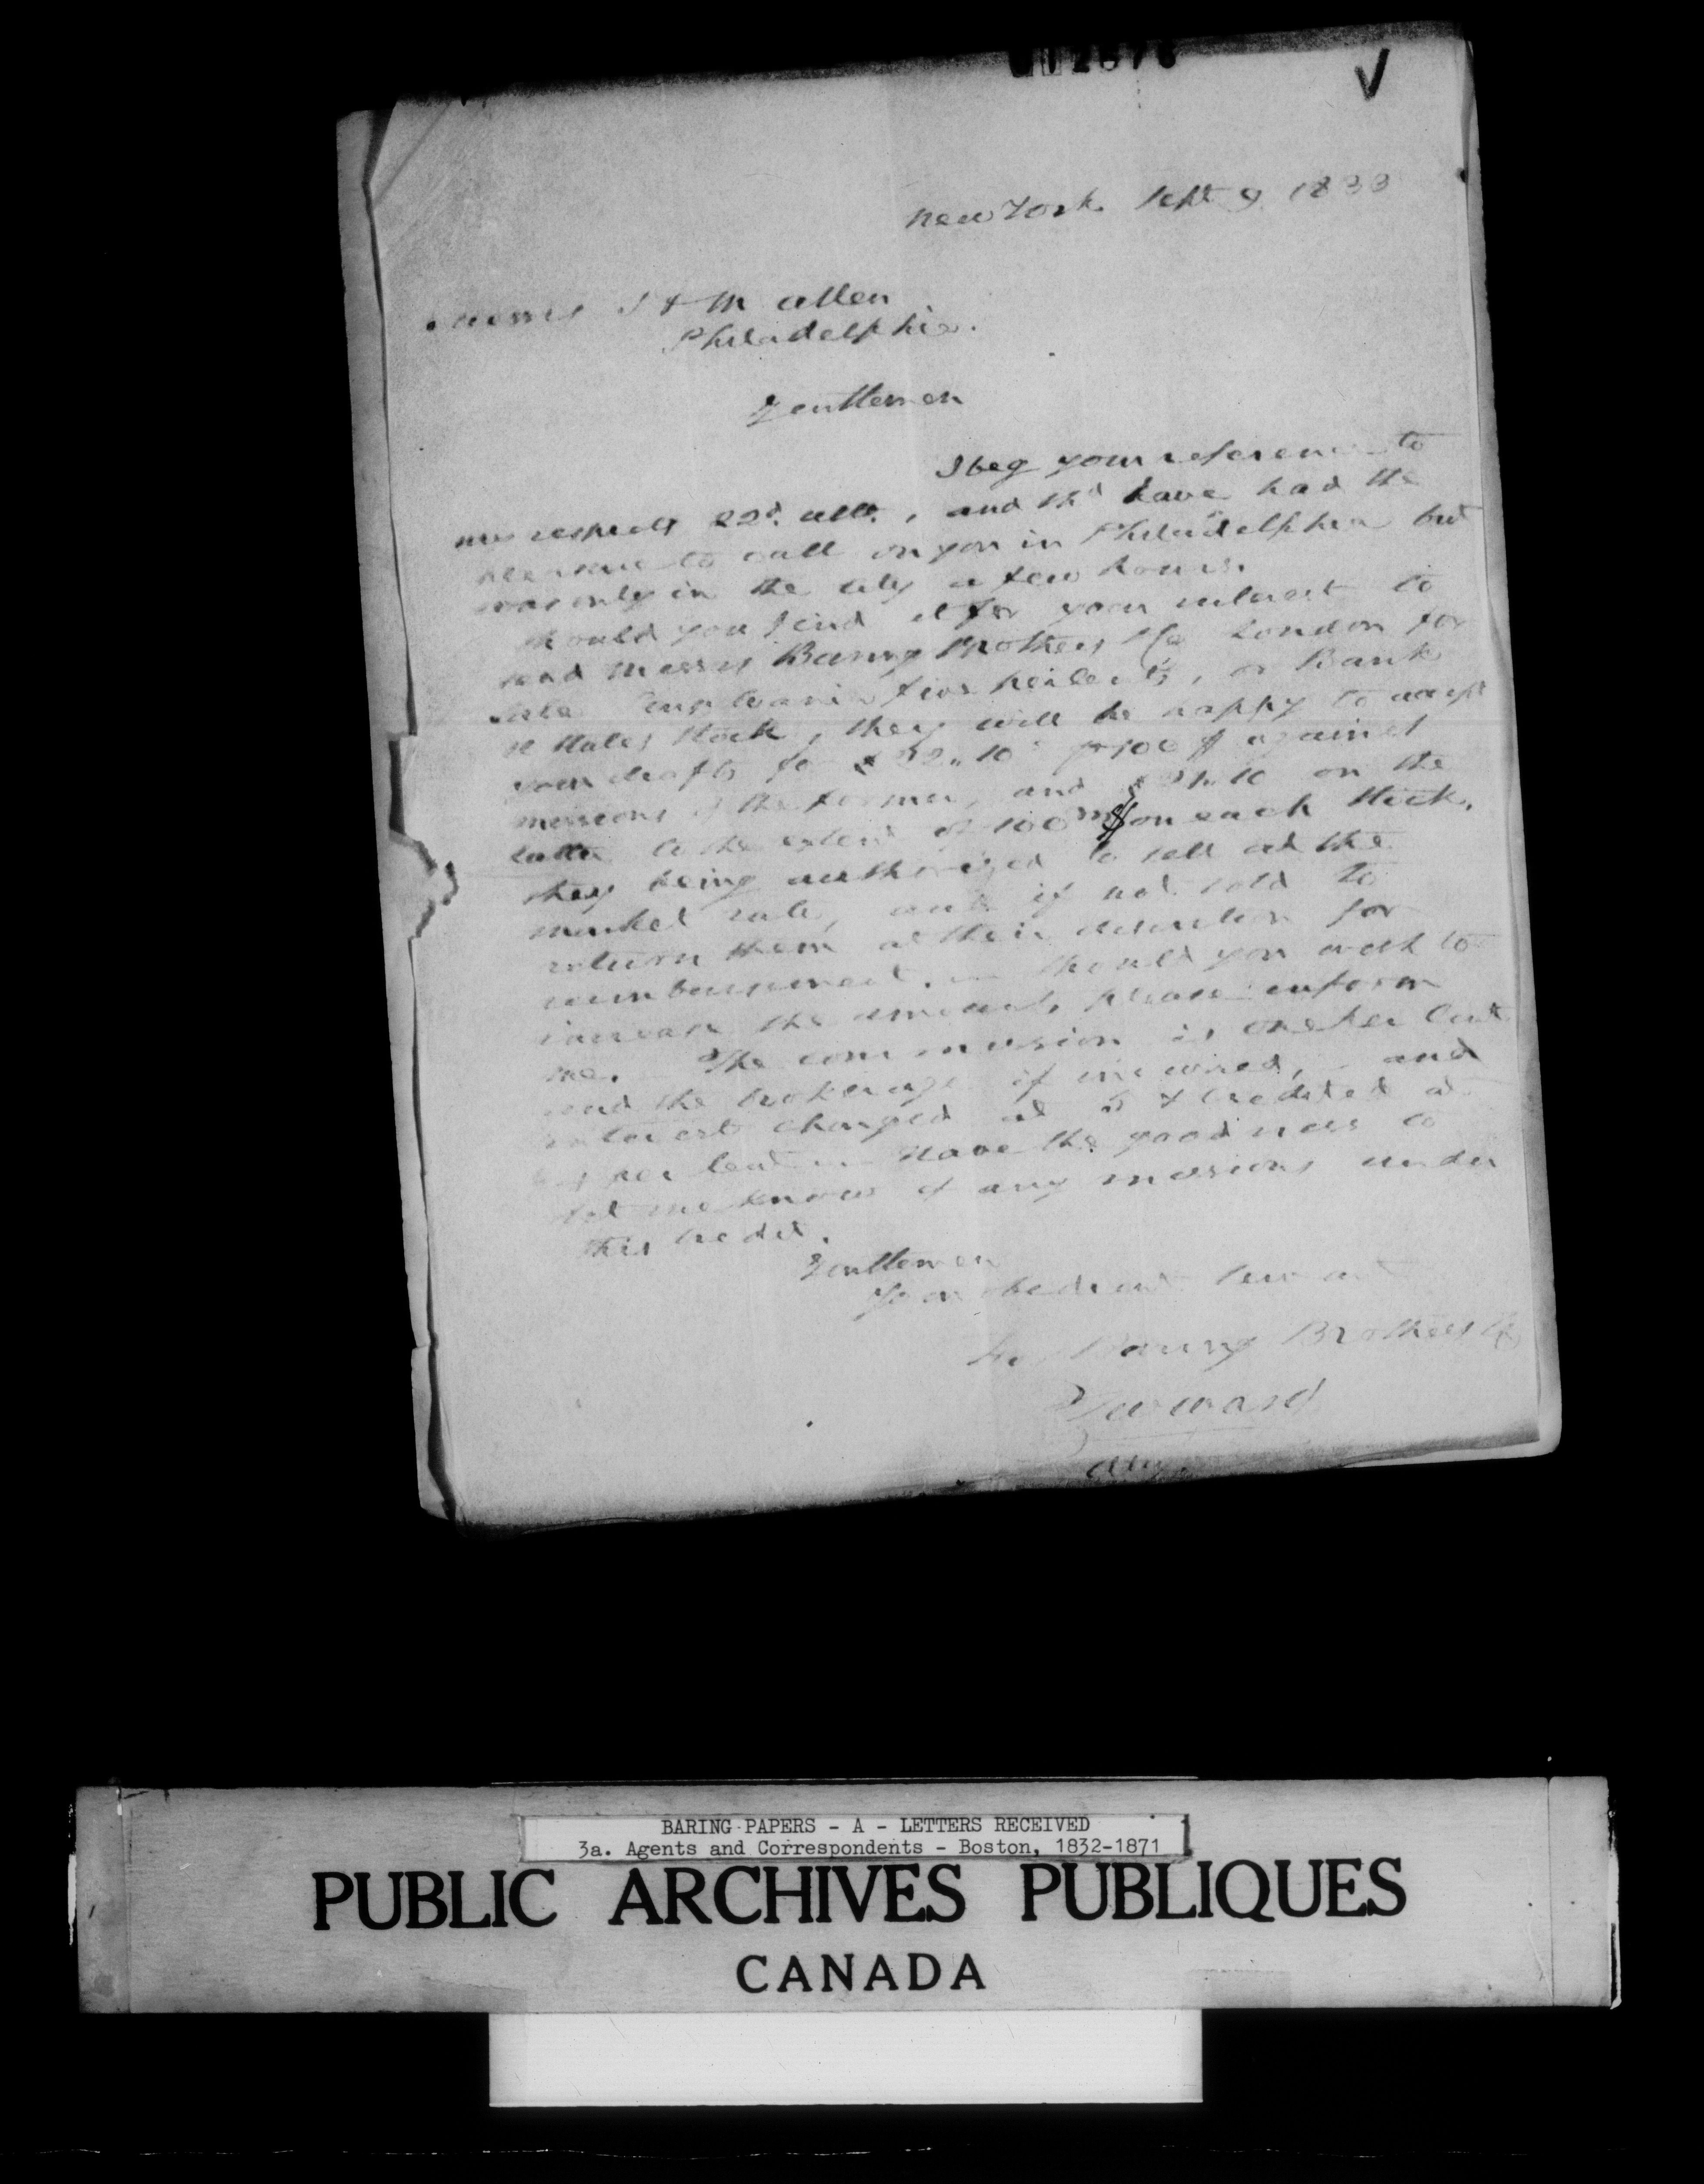 New York Sept 9 1833
Messrs S & M Allen
Philadelphia.
Gentlemen
I beg your reference to
my respects 22d. ulto., and shd have had the
pleasure to call on you in Philadelphia but
was only in the city a few hours.
Should you find it for your interest to
send Messrs Baring Brothers & Co London for
sale Pensylvania five per Cents, or Bank
U States Stock, they will be happy to accept
your drafts for 10 100 $ against
missions of the former, and 10 on the
latter to the extent of 100 m$ on each stock,
they being authorized to sell at the
market rate, and if not sold to
return them at their discretion for
reimbursement. — Should you wish to
increase the amount, please inform
me. — The commission is one per Cent
and the brokerage if incurred, — and
interest charged at 5 & credited at
per Cent — Have the goodness to
let me know of any missions under
this credit.
Gentlemen
Your obedient Servant
for Baring Brothers & Co
T W Ward
BARING PAPERS - A - LETTERS RECEIVED
3a. Agents and Correspondents - Boston, 1832-1871
PUBLIC ARCHIVES PUBLIQUES
CANADA